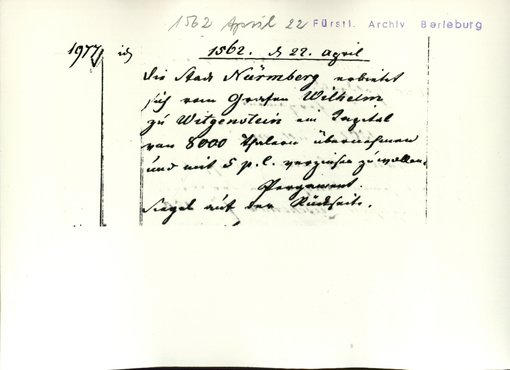 1562 April 22 Fürstl. Archiv Berleburg
1977, 1562. d 22. April
die Stadt Nürmberg erbietet
sich vom Grafen Wilhelm
zu Witgenstein ein Capital
von 8000 Thalern übernehmen
und mit 5 p. c. verzinsen zu wollen.
Pergament.
Siegel auf der Rückseite.